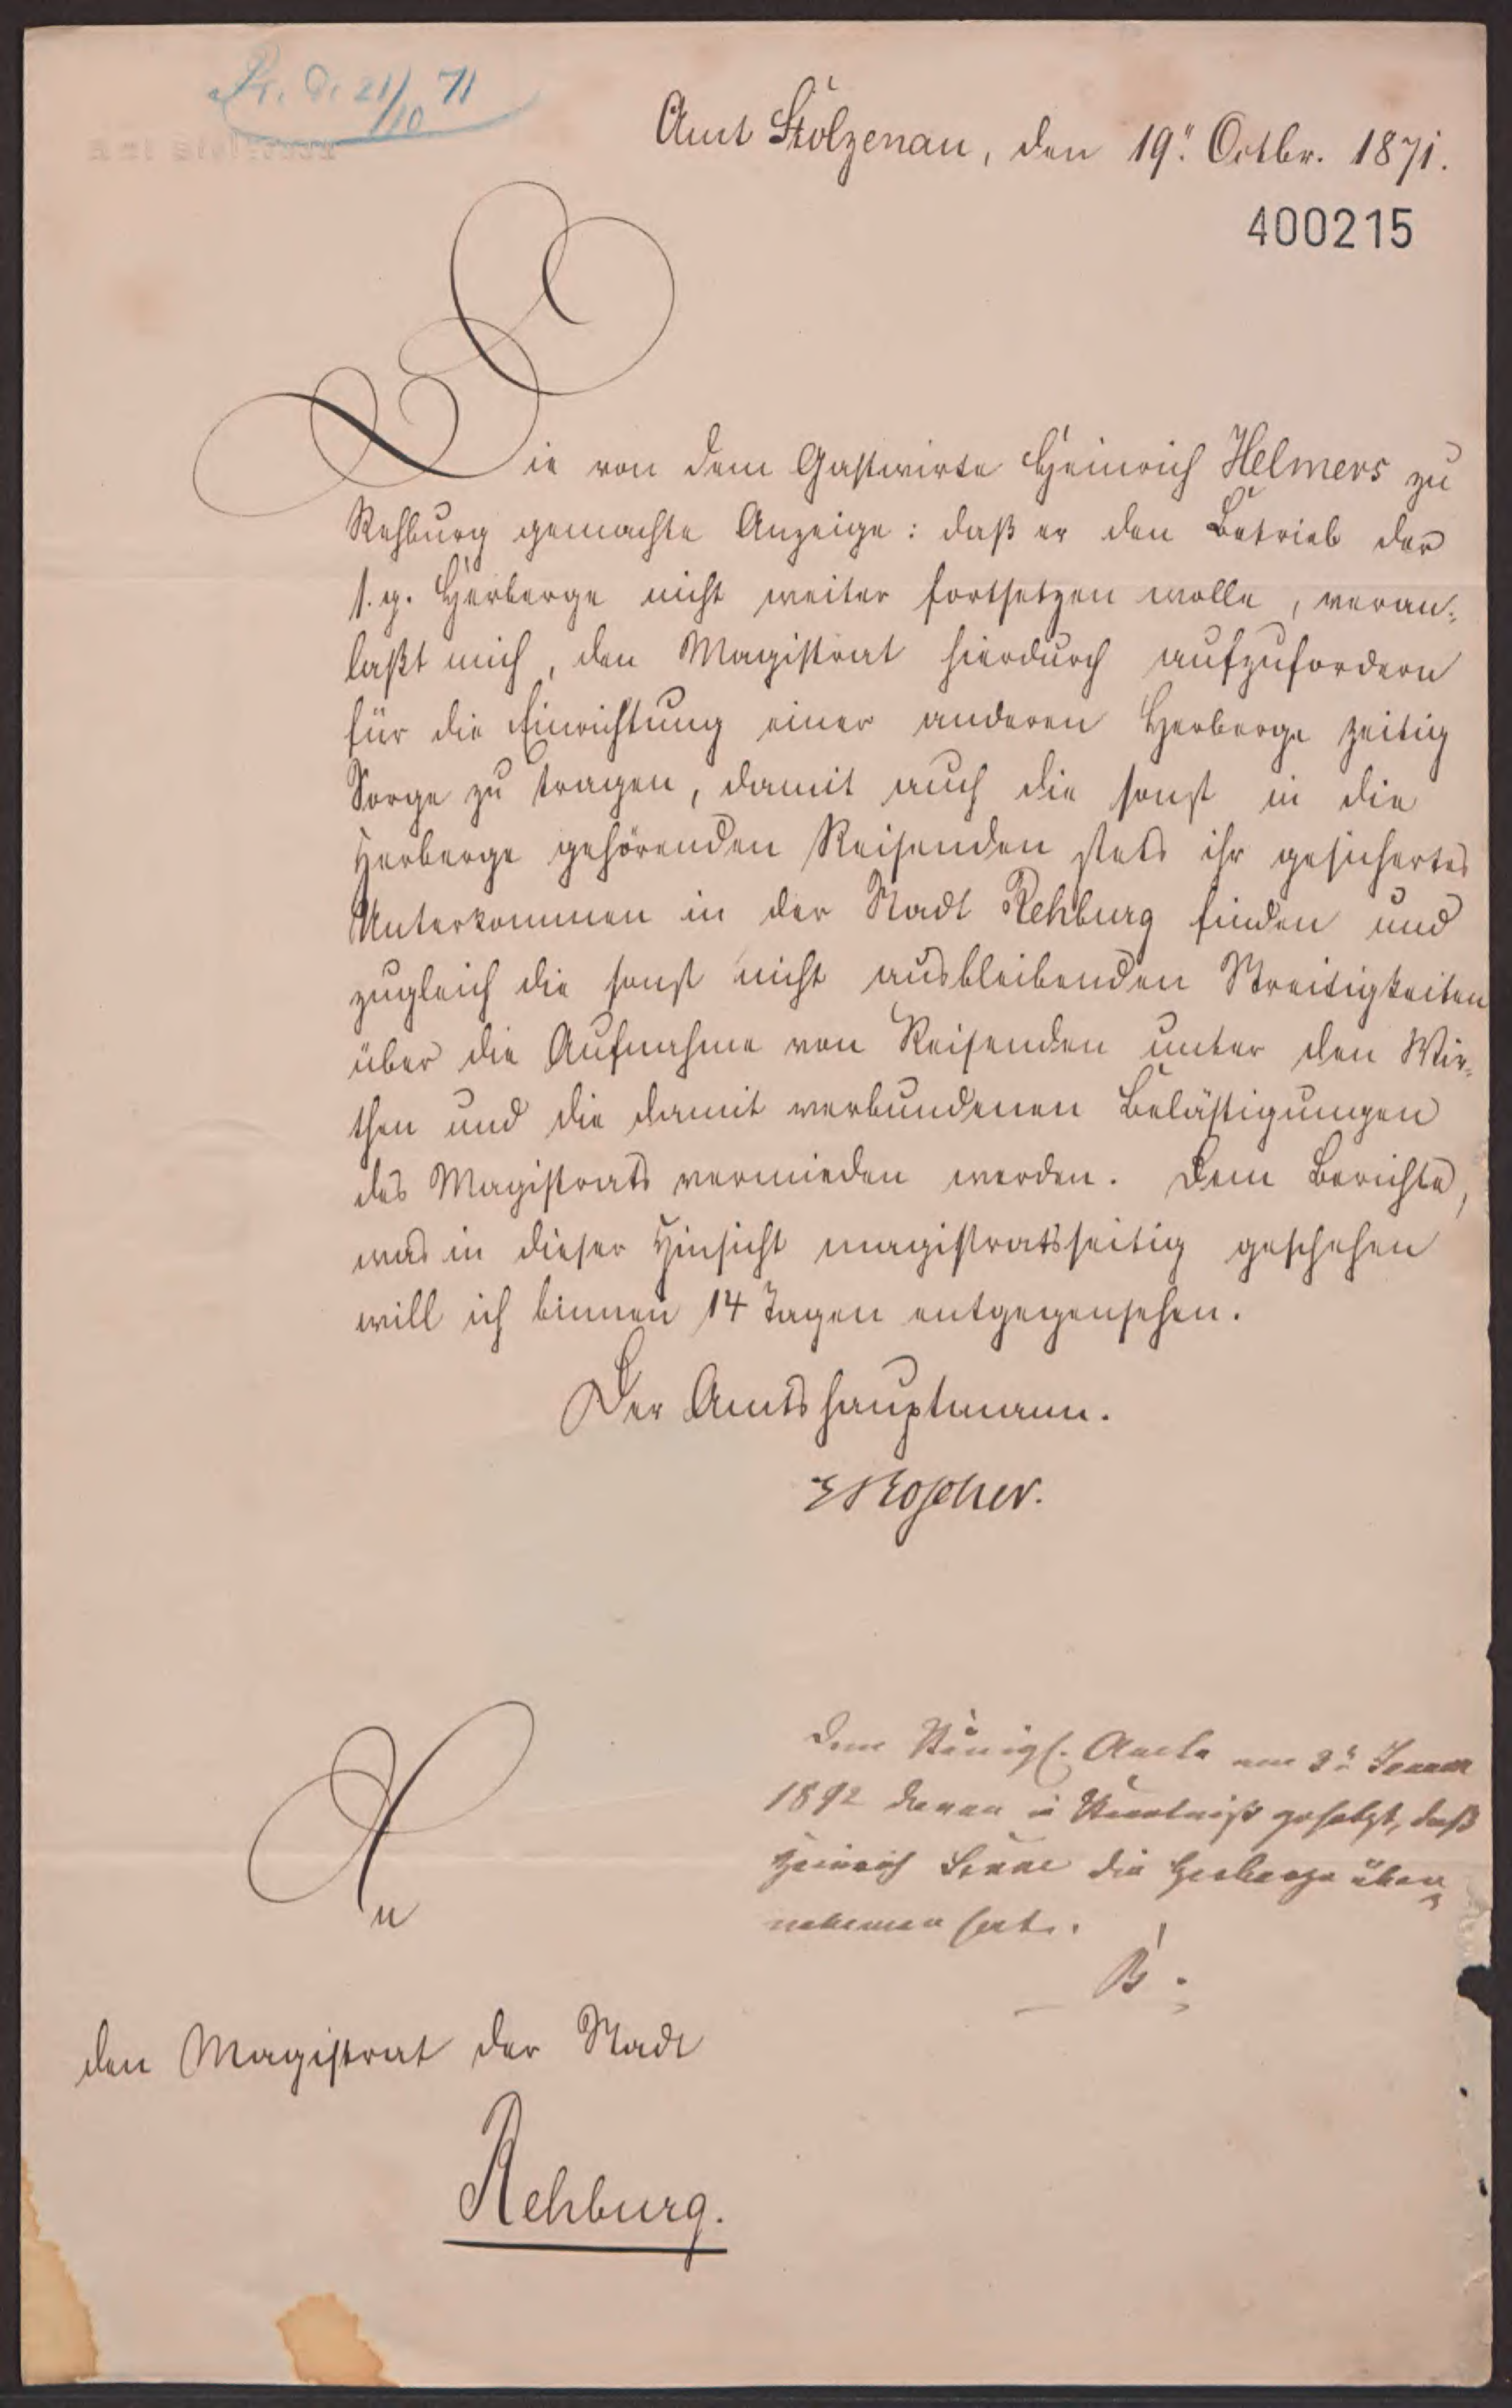 Pr. d. 21/10 71
Amt Stolzenau, den 19ᵗ. Octbr. 1871.
400215
Die von dem Gastwirte Heinrich Helmers zu
Rehburg gemachte Anzeige: daß er den Betrieb der
s. g. Herberge nicht weiter fortsetzen wolle, veran-
laßt mich, den Magistrat hierdurch aufzufordern
für die Einrichtung einer anderen Herberge zeitig
Sorge zu tragen, damit auch die sonst in die
Herberge gehörenden Reisenden stets ihr gesichertes
Unterkommen in der Stadt Rehburg finden und
zugleich die sonst nicht ausbleibenden Streitigkeiten
über die Aufnahme von Reisenden unter den Wir-
then und die damit verbundenen Belästigungen
des Magistrats vermieden werden. Dem Berichte,
was in dieser Hinsicht magistratsseitig geschehen
will ich binnen 14 Tagen entgegensehen.
Der Amtshauptmann.
E Roscher.
Dem Königl. Amte am 3ᵗ
18 2 davon in Kenntniß gesetzt, daß
Heinrich die Herberge über-
nehmen hat.
B.
An
den Magistrat der Stadt
Rehburg.